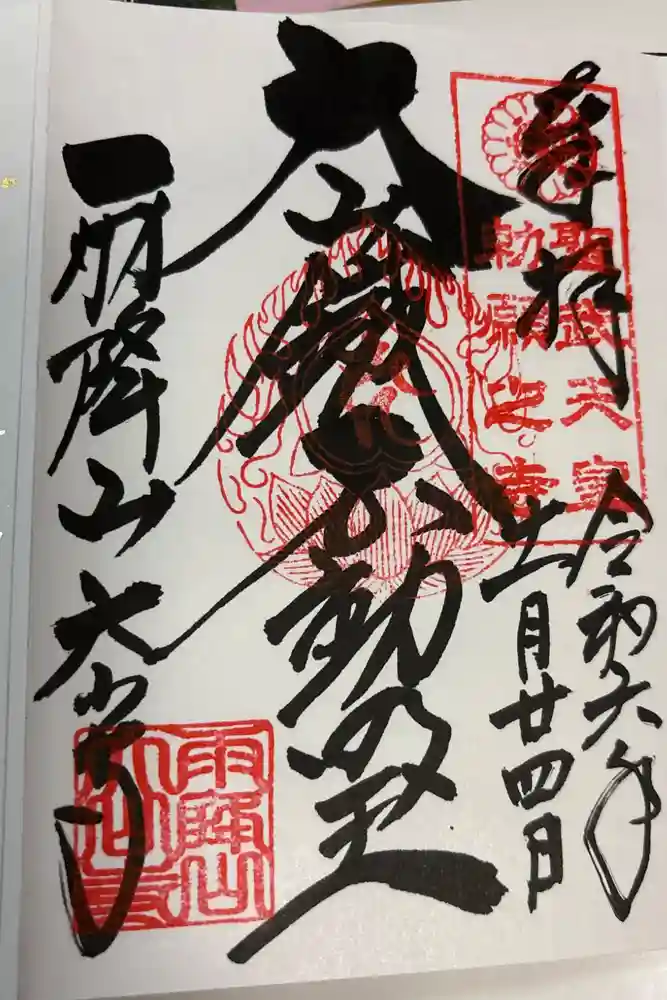 奉拝
聖武天皇
勅願之寺
令和六年
十一月廿四日
大山鐵不動明王
雨降山大山寺
雨降山
大山寺